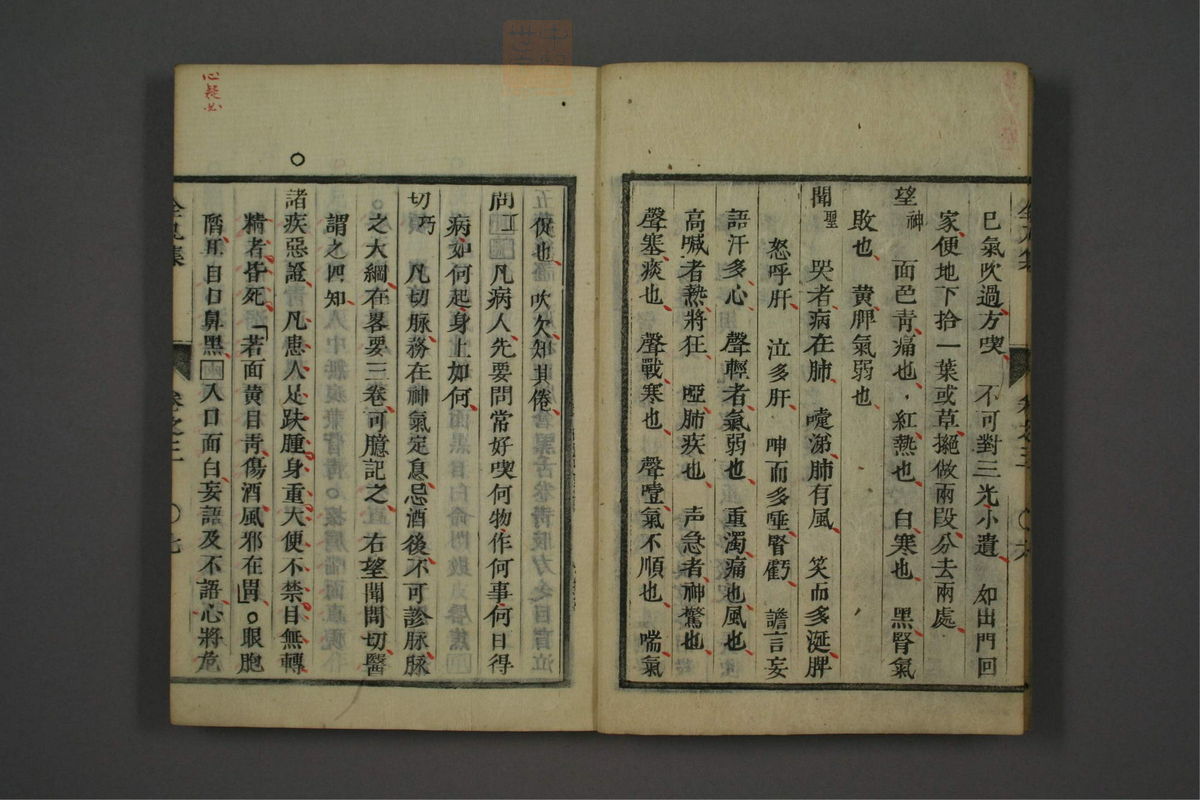 已氣吹過方喫　不可對三光小遺　如出門回
家便地下拾一葉或草撧做兩段分去兩處
望神　面色靑痛也紅熱也　白寒也　黑腎氣
敗也　黃脾氣弱也
聞聖　哭者病在肺　嚏㴋肺有風　笑而多涎脾
怒呼肝　泣多肝　呻而多唾腎虧　譫言妄
語汗多心　聲輕者氣弱也　重濁痛也風也
高喊者熱將狂　啞肺疾也　声急者神驚也
聲塞痰也　聲戰寒也　聲噎氣不順也　喘氣
促也　吹欠知其倦
問工　凡病人先要問常好喫何物作何事何日得
病如何起身上如何
切巧　凡切脉務在神氣定息忌酒後不可診脉脉
之大綱在畧要三卷可臆記之　右望聞問切醫
謂之四知
諸疾惡證　凡患人足趺腫身重大便不禁目無轉
精者昏死　若面黃目靑傷酒風邪在胃　○眼胞
脣耳目口鼻黑　入口面白妄語及不語心將危
全九集　卷之三　○六
卷之三　○七